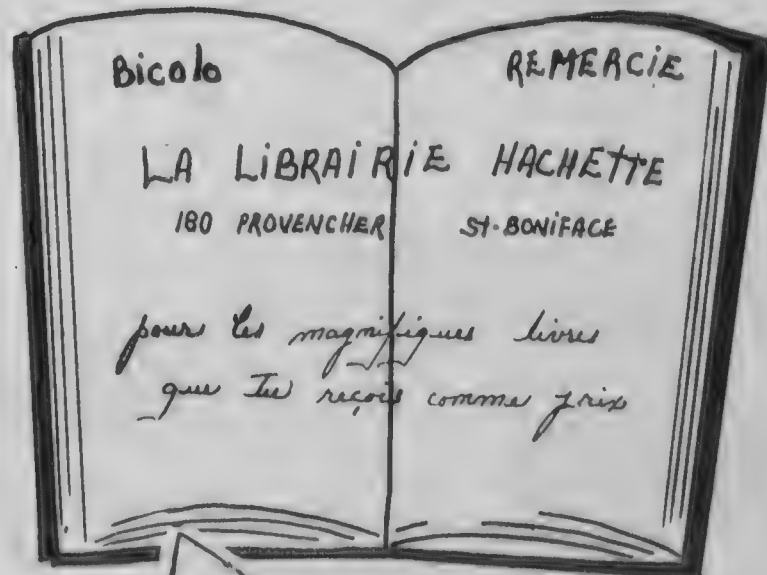 Bicolo REMERCIE
LA LIBRAIRIE HACHETTE
180 PROVENCHER ST-BONIFACE
pour les magnifiques livres
que Tu reçois comme prix